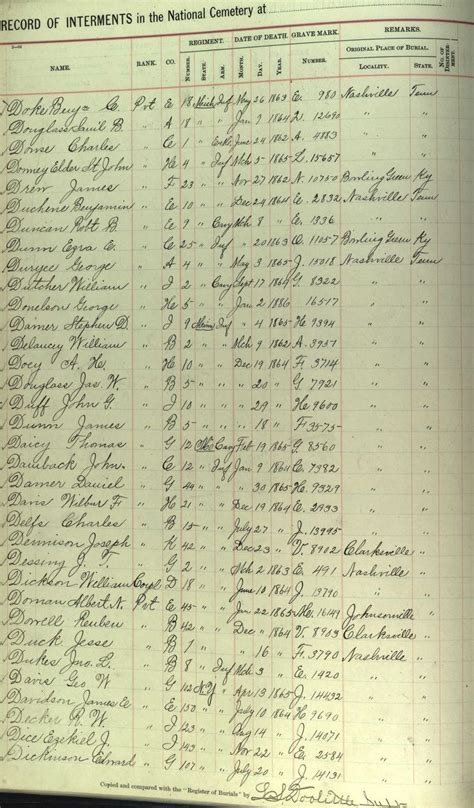 RECORD OF INTERMENTS in the National Cemetery at
REGIMENT. DATE OF DEATH. GRAVE MARK. REMARKS.
ORIGINAL PLACE OF BURIAL.
NAME. RANK. CO. NUMBER. STATE. ARM. MONTH. DAY. YEAR. NUMBER. LOCALITY. STATE. NO. OF
Doke C. Pvt E 18 Mich Inf May 26 1863 E. 980 Nashville Tenn
Douglass B. " A 18 " " Jan 9 1864 " "
Charles " C 1 " June 24 1862 A. 4883 " "
Elder St John " H 4 " Inf Mch 5 1865 L. 15657 " "
Drew James " F 23 " " Nov 27 1862 N. 10750 Bowling Green Ky
Duchene Benjamin " E 10 " " Dec 24 1864 E. 2832 Nashville Tenn
Duncan Robt B. " E 9 " Cavy Mch 8 " E. 1336 " "
Dunn Ezra C. " C 25 " Inf " 20 1863 11057 Bowling Green Ky
Duryee George " A 4 " " May 3 1865 J. Nashville Tenn
Dutcher William " I 2 " Cavy Sept 17 1864 G. 8322 " "
Donelson George " 5 " " Jan 2 1886 16517 " "
Damer Stephen D. " I 9 Minn Inf " 4 1865 H. 9394 " "
Delancey William " B 2 " " Mch 9 1862 A. 3951 " "
A. H. " H 10 " " Dec 19 1864 F. 3714 " "
Douglass Jas. W. " B 5 " " " 20 " G. 7921 " "
Duff John G. " I 10 " " " 29 " H. 9600 " "
Dunn James " B 5 " " " 18 " F. 3575 " "
Daicy Thomas " G 12 Cavy Feb 19 1865 G. 8560 " "
John. " C 12 " Inf Jan 9 1864 E. 7382 " "
Damer Daniel " G 44 " " " 30 1865 H. 9329 " "
Davis Wilbur F. " H 21 " " Dec 19 1864 E. 2933 " "
Delfs Charles " B 15 " " July 27 " J. 13995 " "
Dennison Joseph " K 42 " " Dec 23 " V. 8902 Clarksville "
Dessing J. T. " G 2 " " Mch 2 1863 E. 491 Nashville "
Dickson William Corpl D 18 " " June 10 1864 J. 13790 " "
Doman Albert N. Pvt E 45 " " Jan 22 1865 16149 Johnsonville "
Dorrell Reuben " B 42 " " Dec 1864 V. 8903 Clarksville "
Duck Jesse " B " " " 16 " F. 3790 Nashville "
Dukes Jno. L. " B 8 " Inf Mch 3 " E. 1420 " "
Davis Geo W " G 112 N.Y. " Apr 13 1865 J. 14432 " "
Davidson James E " E 150 " " July 10 1864 H. 9690 " "
Decker R. W " I 123 " " Aug 14 " J. 14071 " "
Dice Ezekiel J. " I 143 " " Nov 22 " E. 2584 " "
Dickinson Edward " G 107 " " July 20 " J. 14131 " "
Copied and compared with the "Register of Burials" by